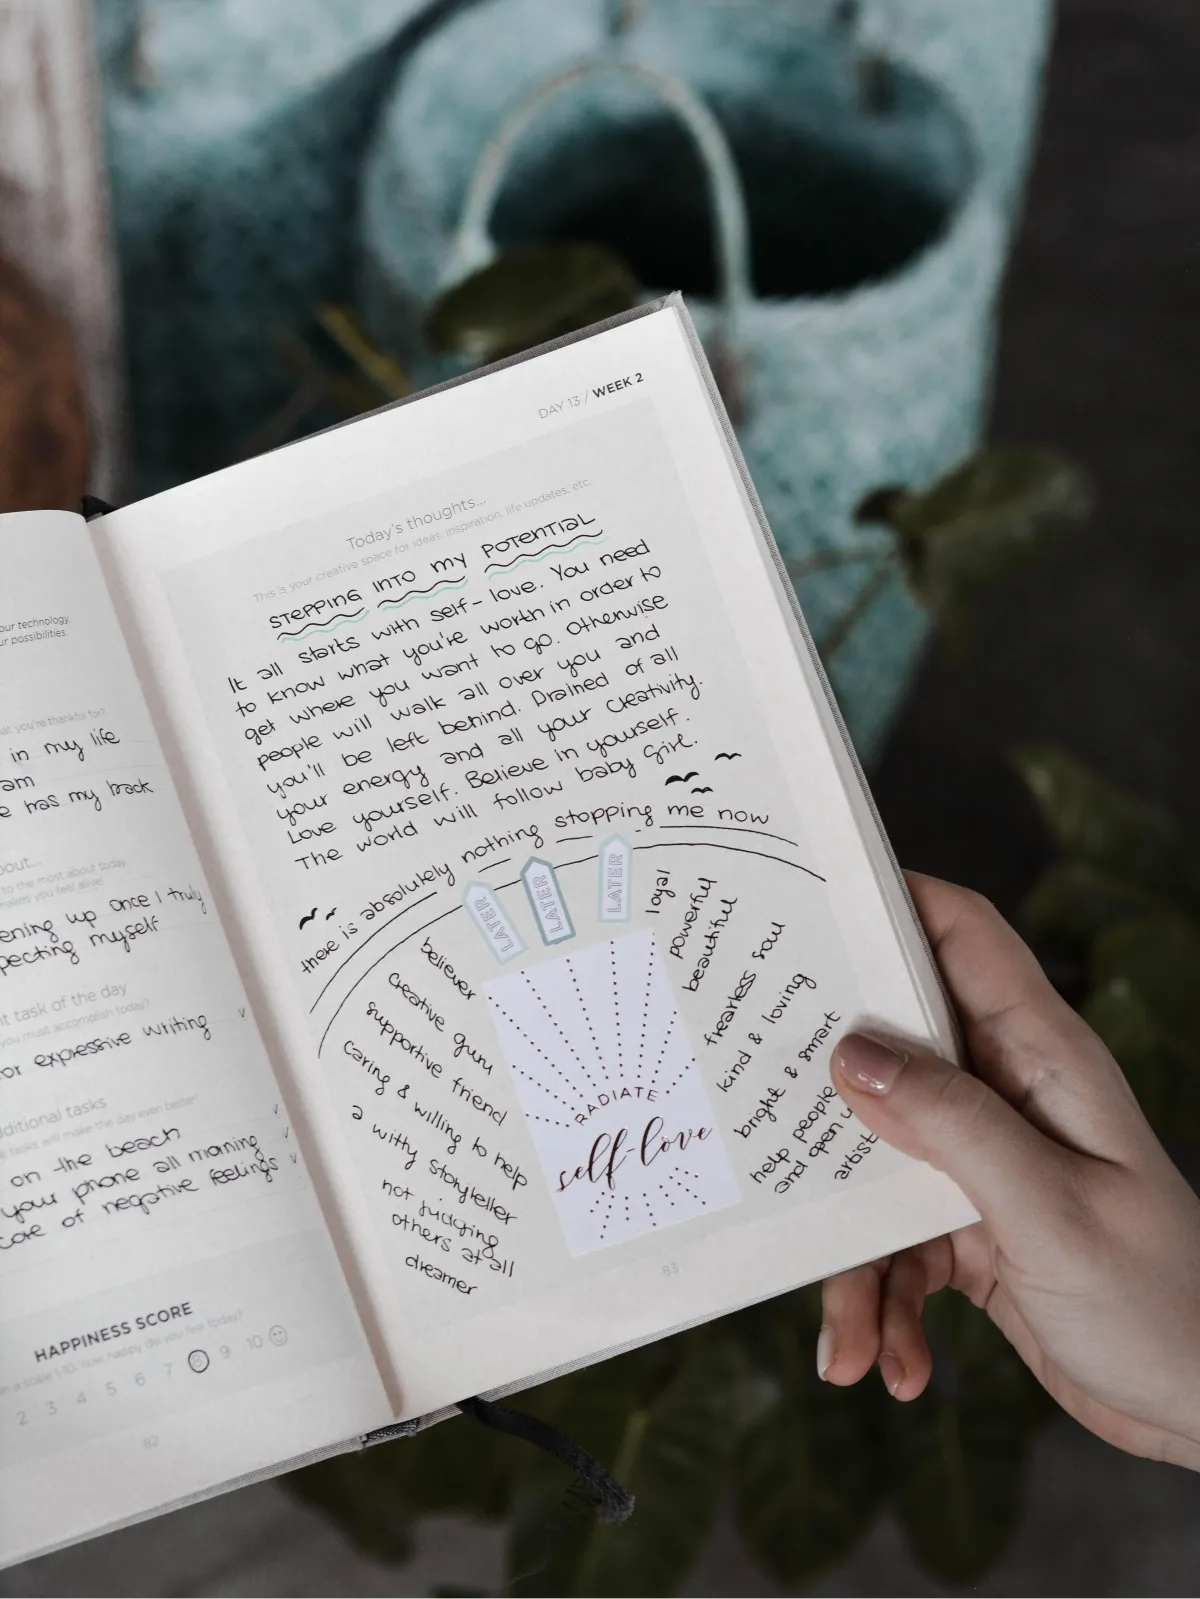 our technology,
ur possibilities.
at you're thankful for?
in my life
am
e has my back
bout...
to the most about today
makes you feel alive!
ening up once I truly
pecting myself
nt task of the day
you must accomplish today?
or expressive writing
ditional tasks
tasks will make the day even better!
on the beach
your phone all morning
care of negative feelings
HAPPINESS SCORE
n a scale 1-10, how happy do you feel today?
2 3 4 5 6 7 8 9 10
82
DAY 13 / WEEK 2
Today's thoughts...
This is your creative space for ideas, inspiration, life updates, etc.
STEPPING INTO MY POTENTIAL
It all starts with self-love. You need
to know what you're worth in order to
get where you want to go. Otherwise
people will walk all over you and
you'll be left behind. Drained of all
your energy and all your creativity.
Love yourself. Believe in yourself.
The world will follow baby girl.
there is absolutely nothing stopping me now
LATER
LATER
LATER
believer
creative guru
supportive friend
caring & willing to help
a witty storyteller
not judging
others at all
dreamer
RADIATE
self-love
loyal
powerful
beautiful
fearless soul
kind & loving
bright & smart
help people
and open u
artist
83